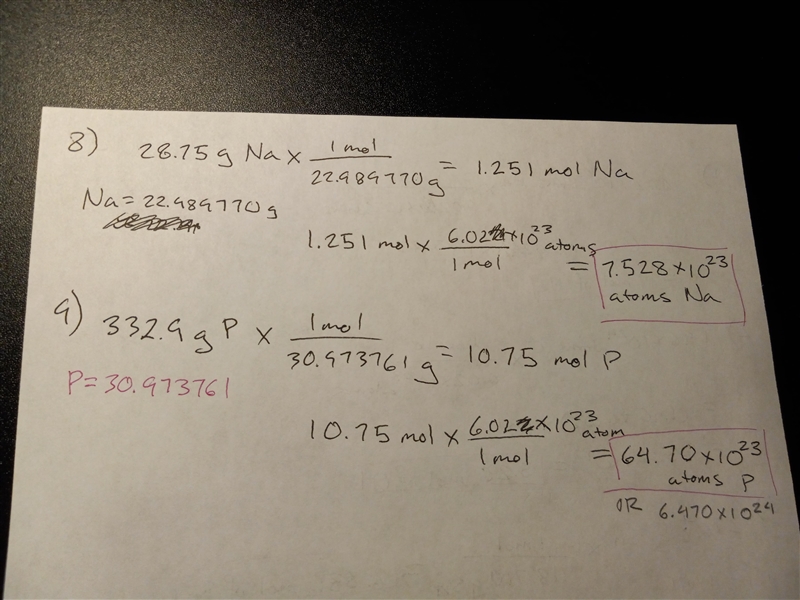 8) 28.75 g Na × 1 mol / 22.989770 g = 1.251 mol Na
Na = 22.989770 g
1.251 mol × 6.022 × 10^23 atoms / 1 mol = 7.528 × 10^23 atoms Na
9) 332.9 g P × 1 mol / 30.973761 g = 10.75 mol P
P = 30.973761
10.75 mol × 6.022 × 10^23 atom / 1 mol = 64.70 × 10^23 atoms P
OR 6.470 × 10^24